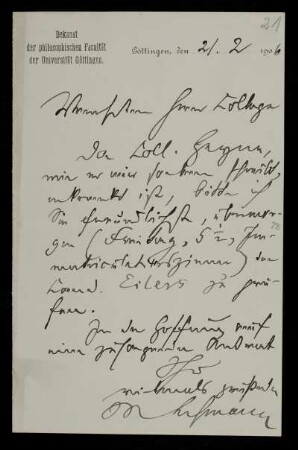 21
Dekanat
der philosophischen Facultät
der Universität Göttingen.
Göttingen, den 21. 2 1906
Verehrter Herr College
Da Coll.
wie er mir soeben schreibt,
erkrankt ist, bitte ich
Sie freundlichst, übermor-
gen (Freitag, 5 ½, Im-
matriculationszimmer) den
Cand. Eilers zu prü-
fen.
In der Hoffnung auf
eine zusagende Antwort
Ihr
vielmals grüßender
Lehmann